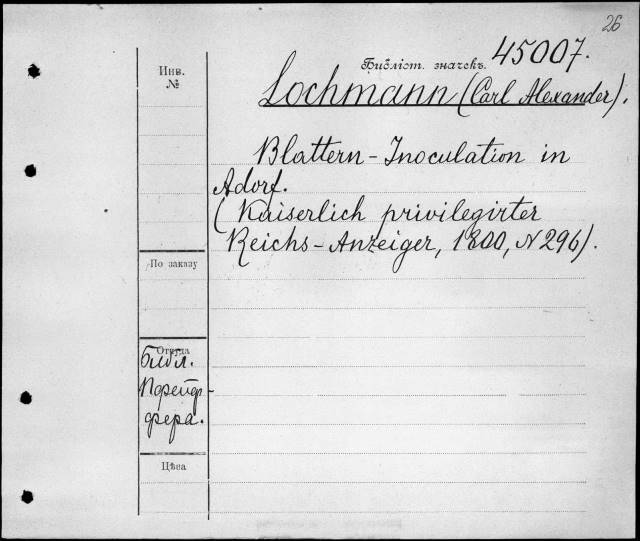 26
Библіот. значекъ. 45007.
Инв.
№
Lochmann (Carl Alexander).
Blattern-Inoculation in
Adorf.
(Kaiserlich privilegirter
Reichs-Anzeiger, 1800, N 296).
По заказу
Откуда
Библ.
Пфейф-
фера.
Цѣна